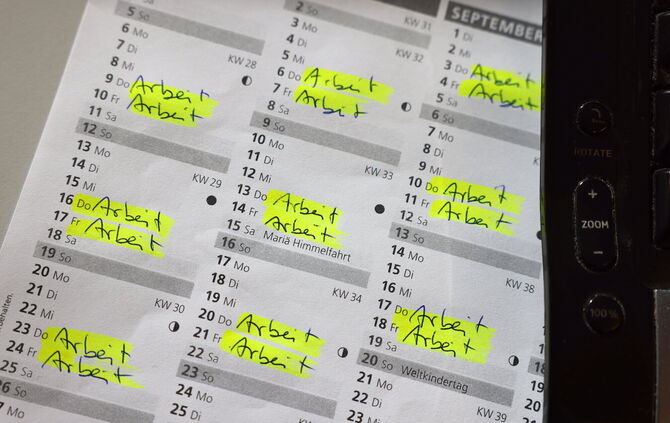 5 So
6 Mo KW 28
7 Di
8 Mi
9 Do Arbeit
10 Fr Arbeit
11 Sa
12 So
13 Mo KW 29
14 Di
15 Mi
16 Do Arbeit
17 Fr Arbeit
18 Sa
19 So
20 Mo KW 30
21 Di
22 Mi
23 Do Arbeit
24 Fr Arbeit
25 Sa
26 So
27 Mo
2 So
3 Mo KW 32
4 Di
5 Mi
6 Do Arbeit
7 Fr Arbeit
8 Sa
9 So
10 Mo KW 33
11 Di
12 Mi
13 Do Arbeit
14 Fr Arbeit
15 Sa Mariä Himmelfahrt
16 So
17 Mo KW 34
18 Di
19 Mi
20 Do Arbeit
21 Fr Arbeit
22 Sa
23 So
24 Mo
25 Di
KW 31
SEPTEMBER
1 Di
2 Mi
3 Do Arbeit
4 Fr Arbeit
5 Sa
6 So
7 Mo
8 Di
9 Mi
10 Do Arbeit
11 Fr Arbeit
12 Sa
13 So
14 Mo KW 38
15 Di
16 Mi
17 Do Arbeit
18 Fr Arbeit
19 Sa
20 So Weltkindertag
21 Mo KW 39
22 Di
23 Mi
ROTATE
+
ZOOM
−
100%